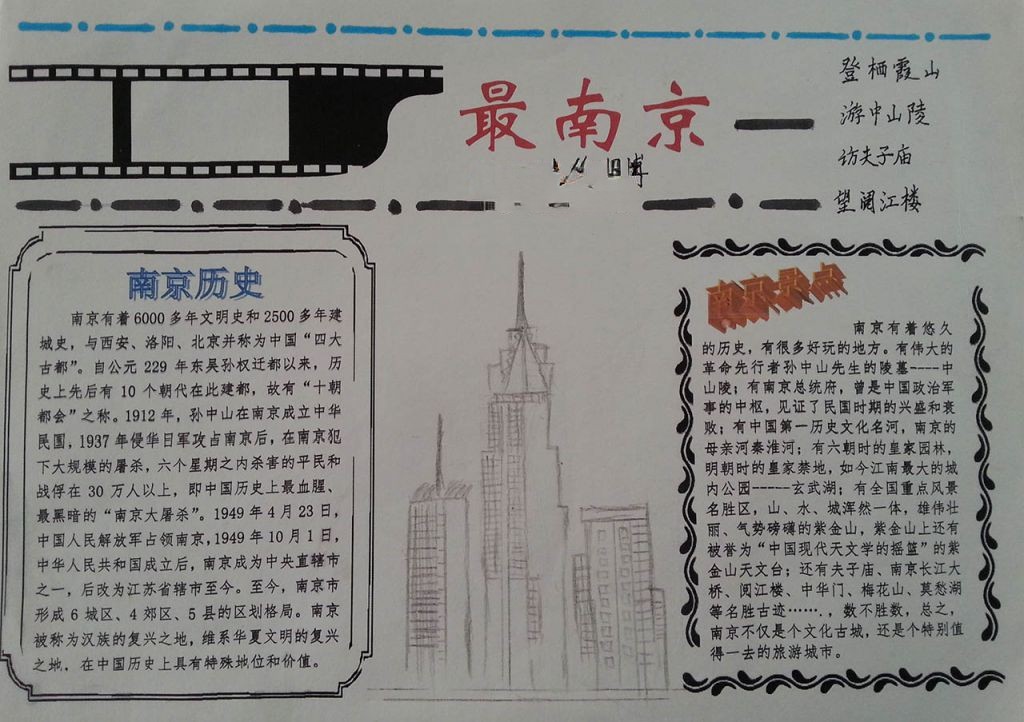 最南京
登栖霞山
游中山陵
访夫子庙
望阅江楼
南京历史
南京有着6000多年文明史和2500多年建
城史，与西安、洛阳、北京并称为中国“四大
古都”。自公元229年东吴孙权迁都以来，历
史上先后有10个朝代在此建都，故有“十朝
都会”之称。1912年，孙中山在南京成立中华
民国，1937年侵华日军攻占南京后，在南京犯
下大规模的屠杀，六个星期之内杀害的平民和
战俘在30万人以上，即中国历史上最血腥、
最黑暗的“南京大屠杀”。1949年4月23日，
中国人民解放军占领南京，1949年10月1日，
中华人民共和国成立后，南京成为中央直辖市
之一，后改为江苏省辖市至今。至今，南京市
形成6城区、4郊区、5县的区划格局。南京
被称为汉族的复兴之地，维系华夏文明的复兴
之地，在中国历史上具有特殊地位和价值。
南京景点
南京有着悠久
的历史，有很多好玩的地方。有伟大的
革命先行者孙中山先生的陵墓----中
山陵；有南京总统府，曾是中国政治军
事的中枢，见证了民国时期的兴盛和衰
败；有中国第一历史文化名河，南京的
母亲河秦淮河；有六朝时的皇家园林，
明朝时的皇家禁地，如今江南最大的城
内公园-----玄武湖；有全国重点风景
名胜区，山、水、城浑然一体，雄伟壮
丽、气势磅礴的紫金山，紫金山上还有
被誉为“中国现代天文学的摇篮”的紫
金山天文台；还有夫子庙、南京长江大
桥、阅江楼、中华门、梅花山、莫愁湖
等名胜古迹……．，数不胜数，总之，
南京不仅是个文化古城，还是个特别值
得一去的旅游城市。